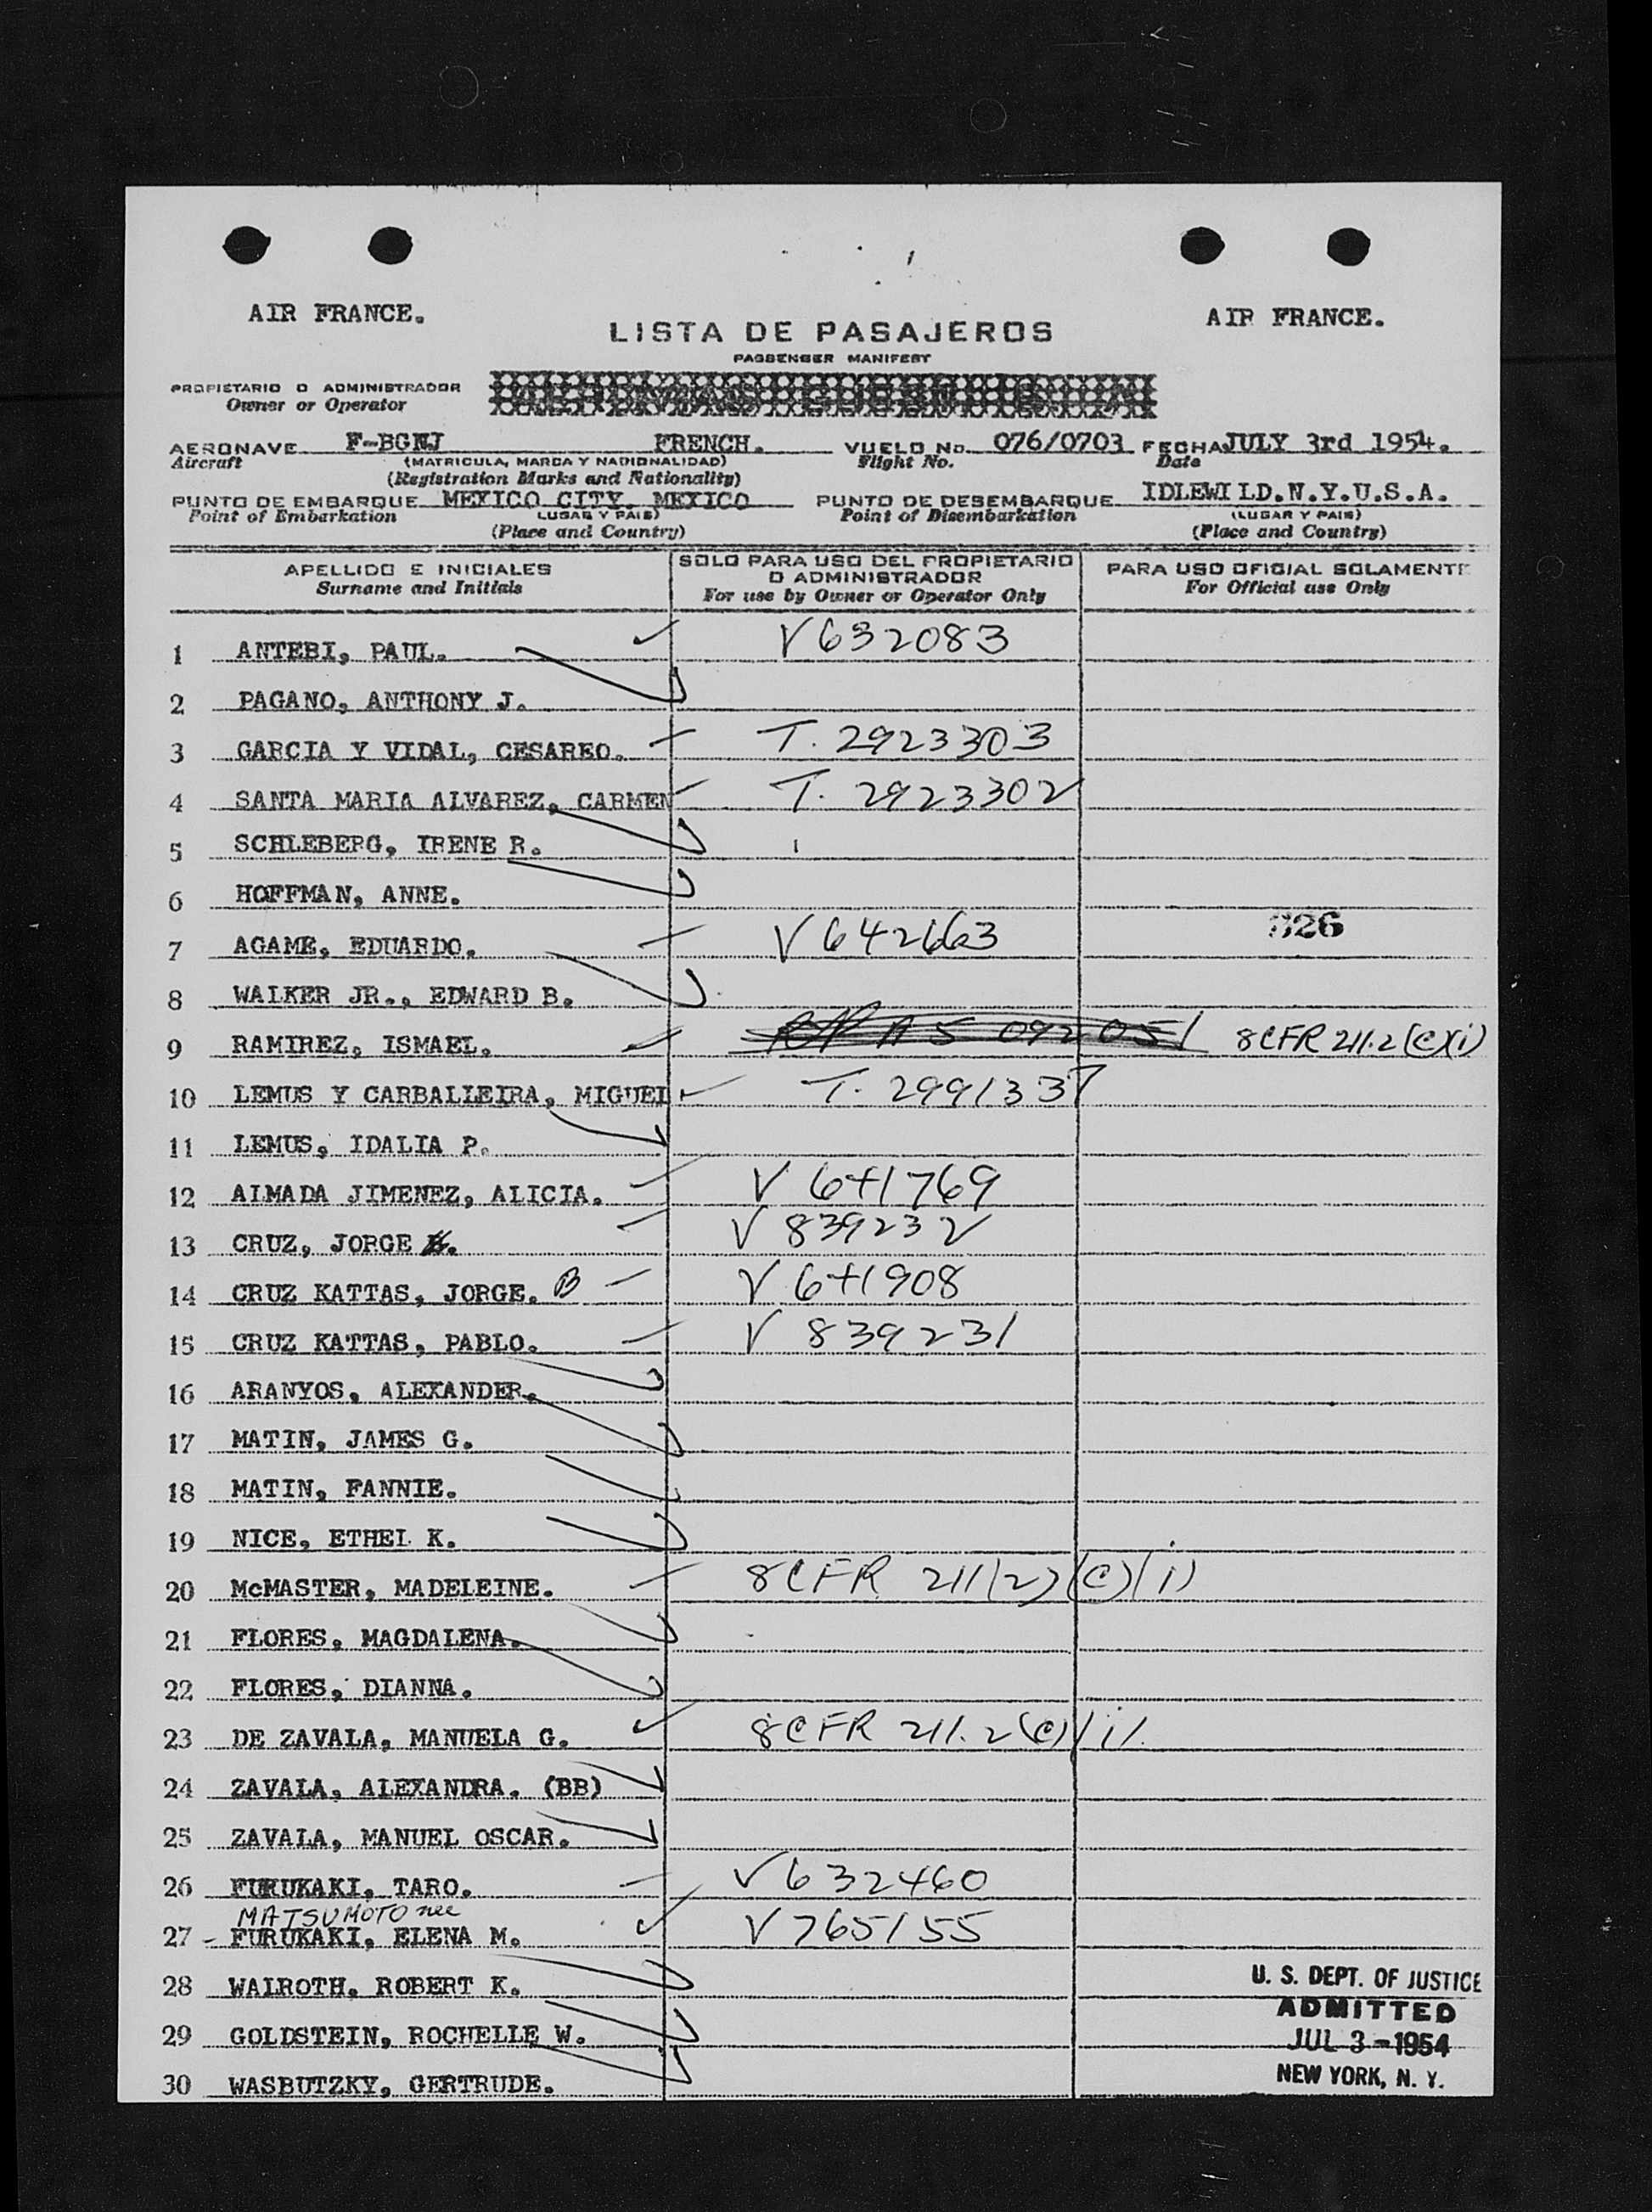 AIR FRANCE.
AIR FRANCE.
LISTA DE PASAJEROS
PASSENGER MANIFEST
PROPIETARIO O ADMINISTRADOR
Owner or Operator
AERONAVE F-BGNJ FRENCH. VUELO No. 076/0703 FECHA JULY 3rd 1954.
Aircraft (MATRICULA, MARCA Y NACIONALIDAD) Flight No. Date
(Registration Marks and Nationality)
PUNTO DE EMBARQUE MEXICO CITY. MEXICO PUNTO DE DESEMBARQUE IDLEWILD.N.Y.U.S.A.
Point of Embarkation (LUGAR Y PAIS) Point of Disembarkation (LUGAR Y PAIS)
(Place and Country) (Place and Country)
APELLIDO E INICIALES
Surname and Initials
SOLO PARA USO DEL PROPIETARIO
O ADMINISTRADOR
For use by Owner or Operator Only
PARA USO OFICIAL SOLAMENTE
For Official use Only
1 ANTEBI, PAUL. V632083
2 PAGANO, ANTHONY J.
3 GARCIA Y VIDAL, CESAREO. T. 2923303
4 SANTA MARIA ALVAREZ, CARMEN T. 2923302
5 SCHLEBERG, IRENE R.
6 HOFFMAN, ANNE.
7 AGAME, EDUARDO. V642663 326
8 WALKER JR., EDWARD B.
9 RAMIREZ, ISMAEL. A 5 092 051 8CFR 211.2(c)(i)
10 LEMUS Y CARBALLEIRA, MIGUEL T. 2991337
11 LEMUS, IDALIA P.
12 ALMADA JIMENEZ, ALICIA. V 641769
13 CRUZ, JORGE V 839232
14 CRUZ KATTAS, JORGE. B V 641908
15 CRUZ KATTAS, PABLO. V 839231
16 ARANYOS, ALEXANDER.
17 MATIN, JAMES G.
18 MATIN, FANNIE.
19 NICE, ETHEL K.
20 McMASTER, MADELEINE. 8CFR 211(2)(c)(i)
21 FLORES, MAGDALENA.
22 FLORES, DIANNA.
23 DE ZAVALA, MANUELA G. 8CFR 211.2(c)(i)
24 ZAVALA, ALEXANDRA. (BB)
25 ZAVALA, MANUEL OSCAR.
26 FURUKAKI, TARO. V632460
MATSUMOTO nee
27 - FURUKAKI, ELENA M. V765155
28 WALROTH, ROBERT K.
29 GOLDSTEIN, ROCHELLE W.
30 WASBUTZKY, GERTRUDE.
U. S. DEPT. OF JUSTICE
ADMITTED
JUL 3 - 1954
NEW YORK, N. Y.